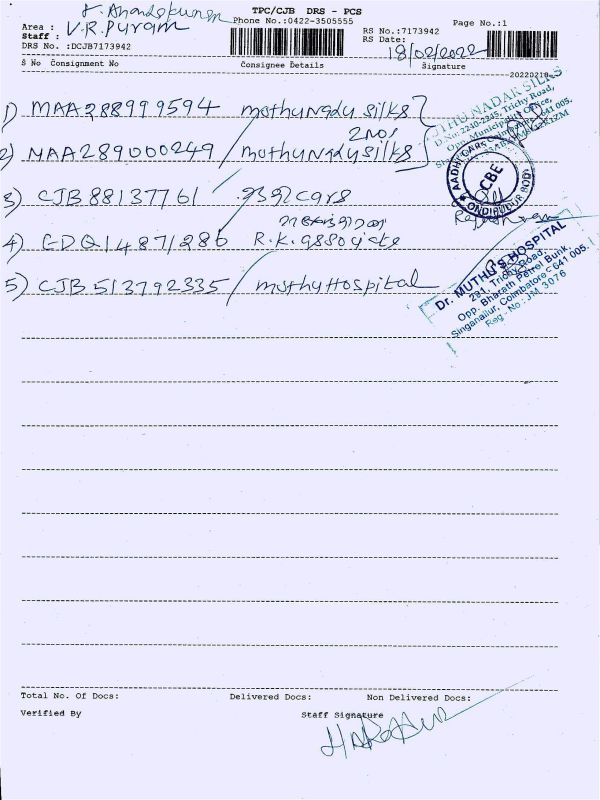 TPC/CJB DRS - PCS
Phone No.:0422-3505555
Page No.:1
Area : V.R.Puram
Staff :
DRS No. :DCJB7173942
RS No.:7173942
RS Date: 18/02/2022
S No Consignment No Consignee Details Signature
20220218
1) MAA288999594 muthunadu silks
2 nos
2) MAA289000249 muthunadu silks
3) CJB 88137761 cars
4) GDQ14871286 R.K. associate
5) CJB 513792335 muthu Hospital
MUTHU NADAR SILKS
D.No: 2240-2245, Trichy Road,
Opp. Municipal Office,
AADHI CARS
CBE
ONDIPUDUR
Dr. MUTHU'S HOSPITAL
291, Trichy Road,
Opp. Bharath Petrol Bunk,
Singanallur, Coimbatore - 641 005.
Reg - No : JM 3076
Total No. Of Docs: Delivered Docs: Non Delivered Docs:
Verified By Staff Signature